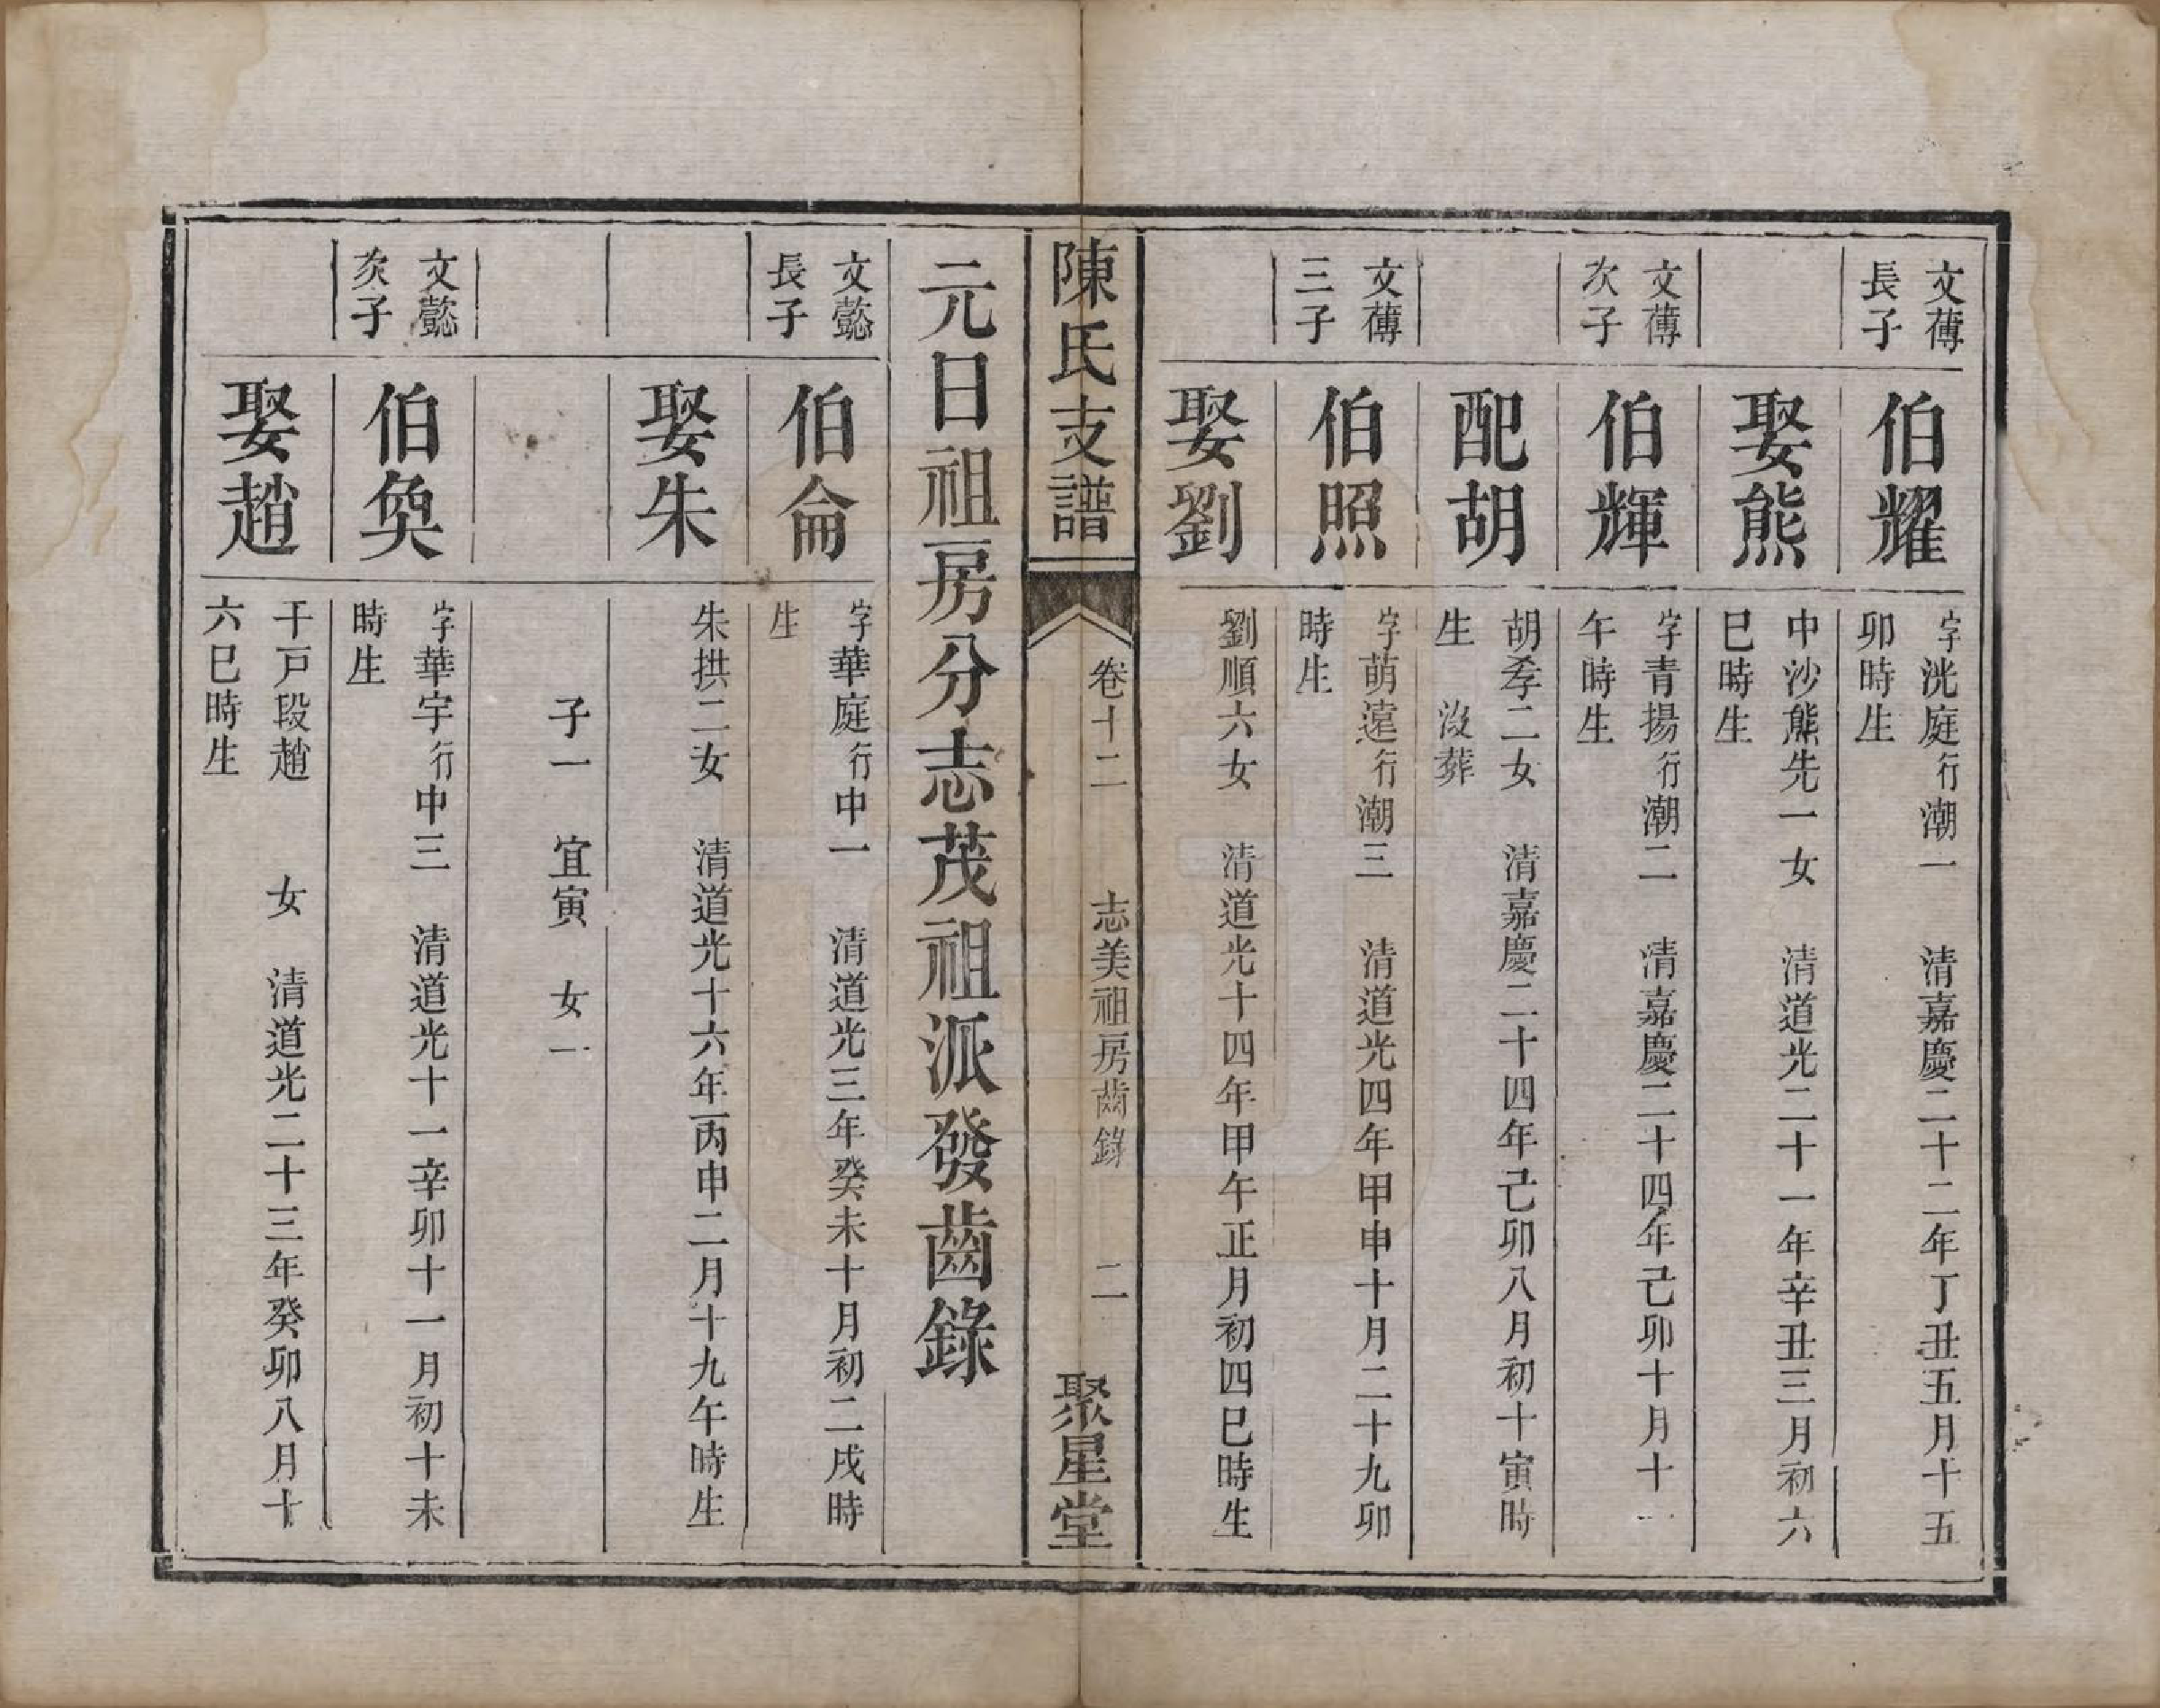 文薄
長子
伯耀
字洸庭行潮一　清嘉慶二十二年丁丑五月十五
卯時生
娶熊
中沙熊先一女　清道光二十一年辛丑三月初六
巳時生
文薄
次子
伯輝
字青揚行潮二　清嘉慶二十四年己卯十月十一
午時生
配胡
胡孝二女　清嘉慶二十四年己卯八月初十寅時
生　沒葬
文薄
三子
伯照
字萌遠行潮三　清道光四年甲申十月二十九卯
時生
娶劉
劉順六女　清道光十四年甲午正月初四巳時生
陳氏支譜
卷十二
志美祖房齒錄
二
聚星堂
元日祖房分志茂祖派發齒錄
文懿
長子
伯侖
字華庭行中一　清道光三年癸未十月初二戌時
生
娶朱
朱拱二女　清道光十六年丙申二月十九午時生
子一　宜寅　女一
文懿
次子
伯奐
字華宇行中三　清道光十一辛卯十一月初十未
時生
娶趙
干戸段趙　女　清道光二十三年癸卯八月十
六巳時生